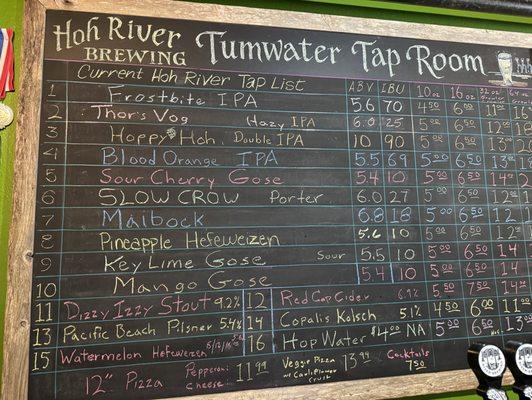 Hoh River Brewing Tumwater Tap Room
Current Hoh River Tap List ABV IBU 10oz 16oz 32oz
1 Frostbite IPA 5.6 70 4.50 6.00 11
2 Thor's Vog Hazy IPA 6.0 25 5.00 6.00 12
3 Hoppy Hoh Double IPA 10 90 5.00 6.50 13
4 Blood Orange IPA 5.5 69 5.00 6.50 13
5 Sour Cherry Gose 5.4 10 5.00 6.50 14
6 Slow Crow Porter 6.0 27 5.00 6.00 12
7 Maibock 6.8 18 5.00 6.00 12
8 Pineapple Hefeweizen 5.6 10 5.00 6.00 12
9 Key Lime Gose Sour 5.5 10 5.00 6.50 14
10 Mango Gose 5.4 10 5.00 6.50 14
11 Dizzy Izzy Stout 9.2% 12 Red Cap Cider 6.9% 5.50 7.50 14
13 Pacific Beach Pilsner 5.4% 14 Copalis Kolsch 5.1% 4.50 6.00 11
15 Watermelon Hefeweizen 16 Hop Water $4.00 NA 5.00 6.50 13
12" Pizza Pepperoni Cheese 11.99 Veggie Pizza w/ Cauliflower Crust 13.99 Cocktails 7.50